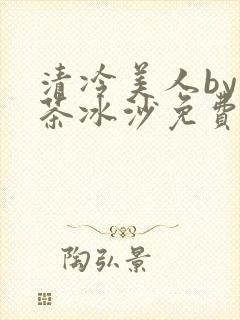 清冷美人by
茶冰沙免费
陶弘景